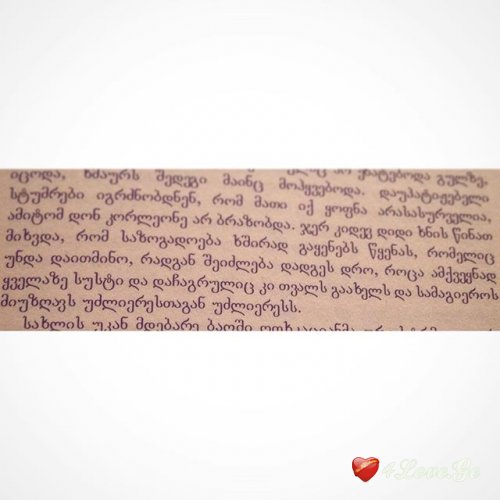 იცოდა, ხმაურს შედეგი მაინც მოჰყვებოდა. დაუპატიჟებელი
სტუმრები იგრძნობდნენ, რომ მათი იქ ყოფნა არასასურველია,
ამიტომ დონ კორლეონე არ ბრაზობდა. ჯერ კიდევ დიდი ხნის წინათ
მიხვდა, რომ საზოგადოება ხშირად გაყენებს წყენას, რომელიც
უნდა დაითმინო, რადგან შეიძლება დადგეს დრო, როცა ამქვეყნად
ყველაზე სუსტი და დაჩაგრულიც კი თვალს გაახელს და სამაგიეროს
მიუზღავს უძლიერესთაგან უძლიერესს.
სახლის უკან მდებარე ბაღში
4Love.Ge